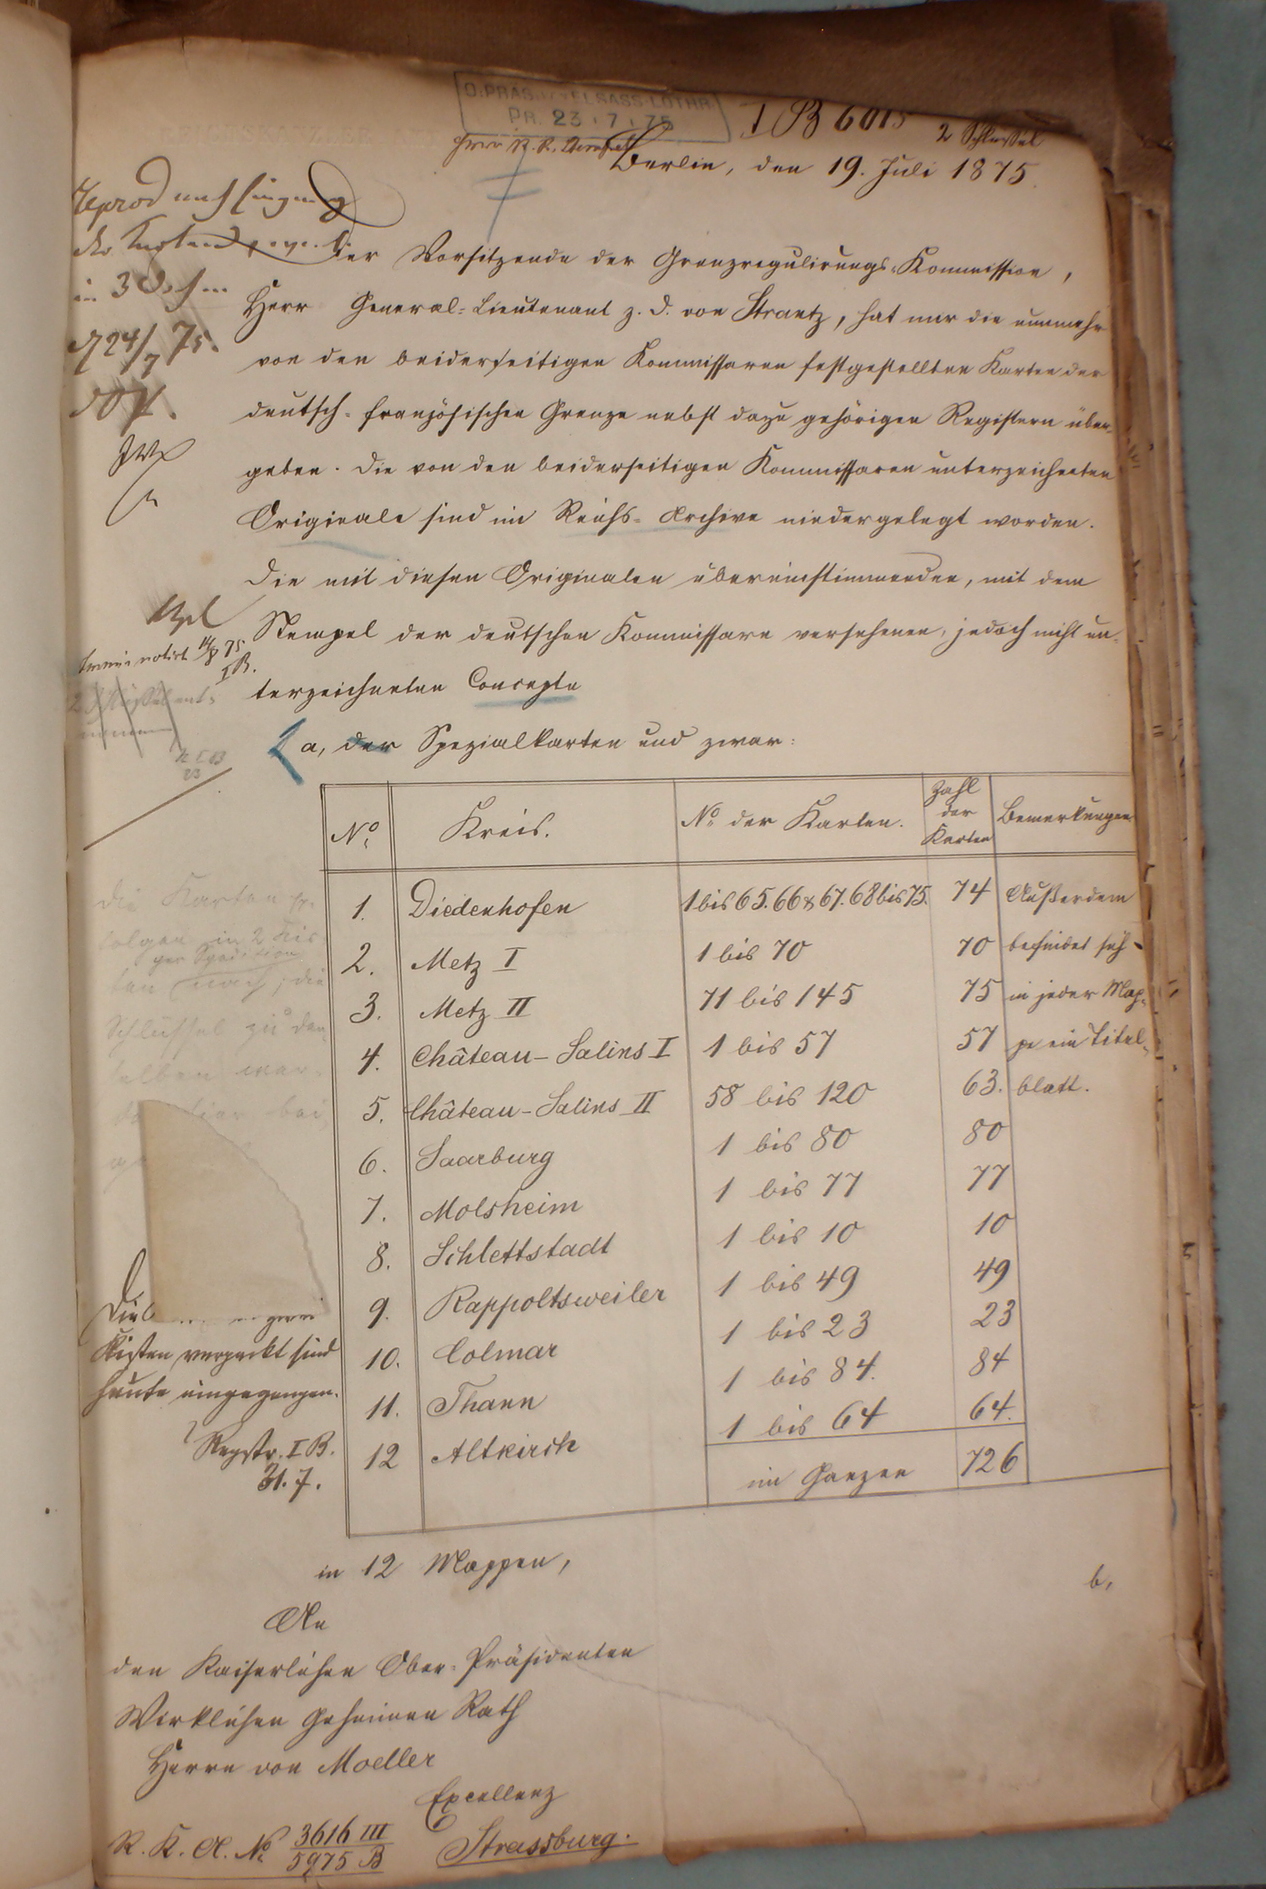 O. PRÄS. ELSASS-LOTHR
PR. 23.7.75
I B 6015
2 Schlüssel
Berlin, den 19. Juli 1875.
Der Vorsitzende der Grenzregulirungs-Kommission,
Herr General-Lieutenant z. D. von Strantz, hat mir die nunmehr
von den beiderseitigen Kommissaren festgestellten Karten der
deutsch-französischen Grenze nebst dazu gehörigen Registern über-
geben. Die von den beiderseitigen Kommissaren unterzeichneten
Originale sind im Reichs-Archive niedergelegt worden.
Die mit diesen Originalen übereinstimmenden, mit dem
Stempel der deutschen Kommissare versehenen, jedoch nicht un-
terzeichneten Concepte
a, der Spezialkarten und zwar:
No. Kreis. No. der Karten. Zahl der Karten Bemerkungen
1. Diedenhofen 1 bis 65. 66 & 67. 68 bis 75. 74 Außerdem
2. Metz I 1 bis 70 70 befindet sich
3. Metz II 71 bis 145 75 in jeder Map-
4. Château-Salins I 1 bis 57 57 pe ein Titel-
5. Château-Salins II 58 bis 120 63. blatt.
6. Saarburg 1 bis 80 80
7. Molsheim 1 bis 77 77
8. Schlettstadt 1 bis 10 10
9. Rappoltsweiler 1 bis 49 49
10. Colmar 1 bis 23 23
11. Thann 1 bis 84. 84
12 Altkirch 1 bis 64 64.
im Ganzen 726
in 12 Mappen,
b,
An
den Kaiserlichen Ober-Präsidenten
Wirklichen Geheimen Rath
Herrn von Moeller
Excellenz
Strassburg.
R. K. A. No. 3616 III
5975 B
in 3
24/7 75.
notirt 14/8 75
I B.
Die Karten
folgen in 2 Kis-
per Spedition
ten nach, die
Schlüssel zu den-
selben wer-
hier bei
zwei
Kisten verpackt sind
heute eingegangen.
Regstr. I B.
31. 7.